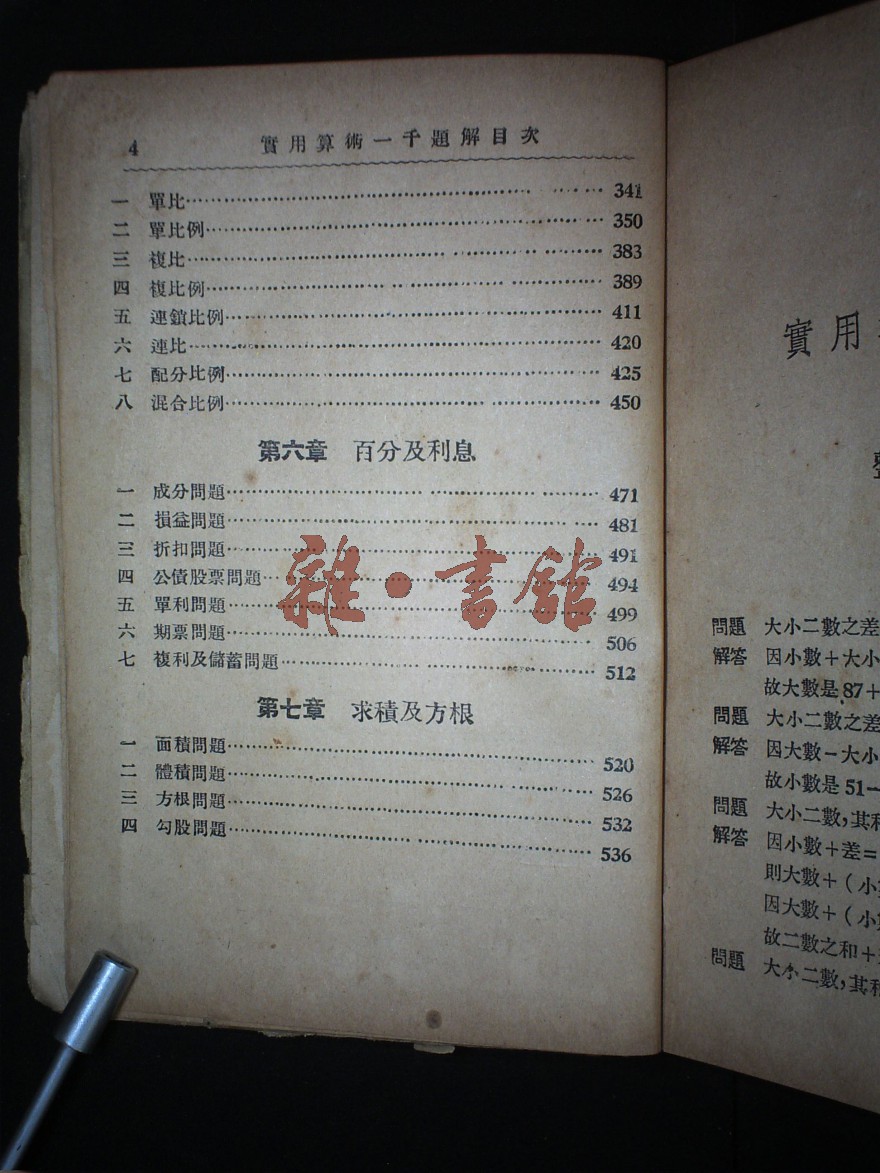 4 實用算術一千題解目次
一 單比 341
二 單比例 350
三 複比 383
四 複比例 389
五 連鎖比例 411
六 連比 420
七 配分比例 425
八 混合比例 450
第六章 百分及利息
一 成分問題 471
二 損益問題 481
三 折扣問題 491
四 公債股票問題 494
五 單利問題 499
六 期票問題 506
七 複利及儲蓄問題 512
第七章 求積及方根
一 面積問題 520
二 體積問題 526
三 方根問題 532
四 勾股問題 536
雜·書館
實用
問題 大小二數之差
解答 因小數+大小
故大數是87+
問題 大小二數之差
解答 因大數-大小
故小數是51-
問題 大小二數,其和
解答 因小數+差=
則大數+(小
因大數+(小
故二數之和+
問題 大小二數,其和